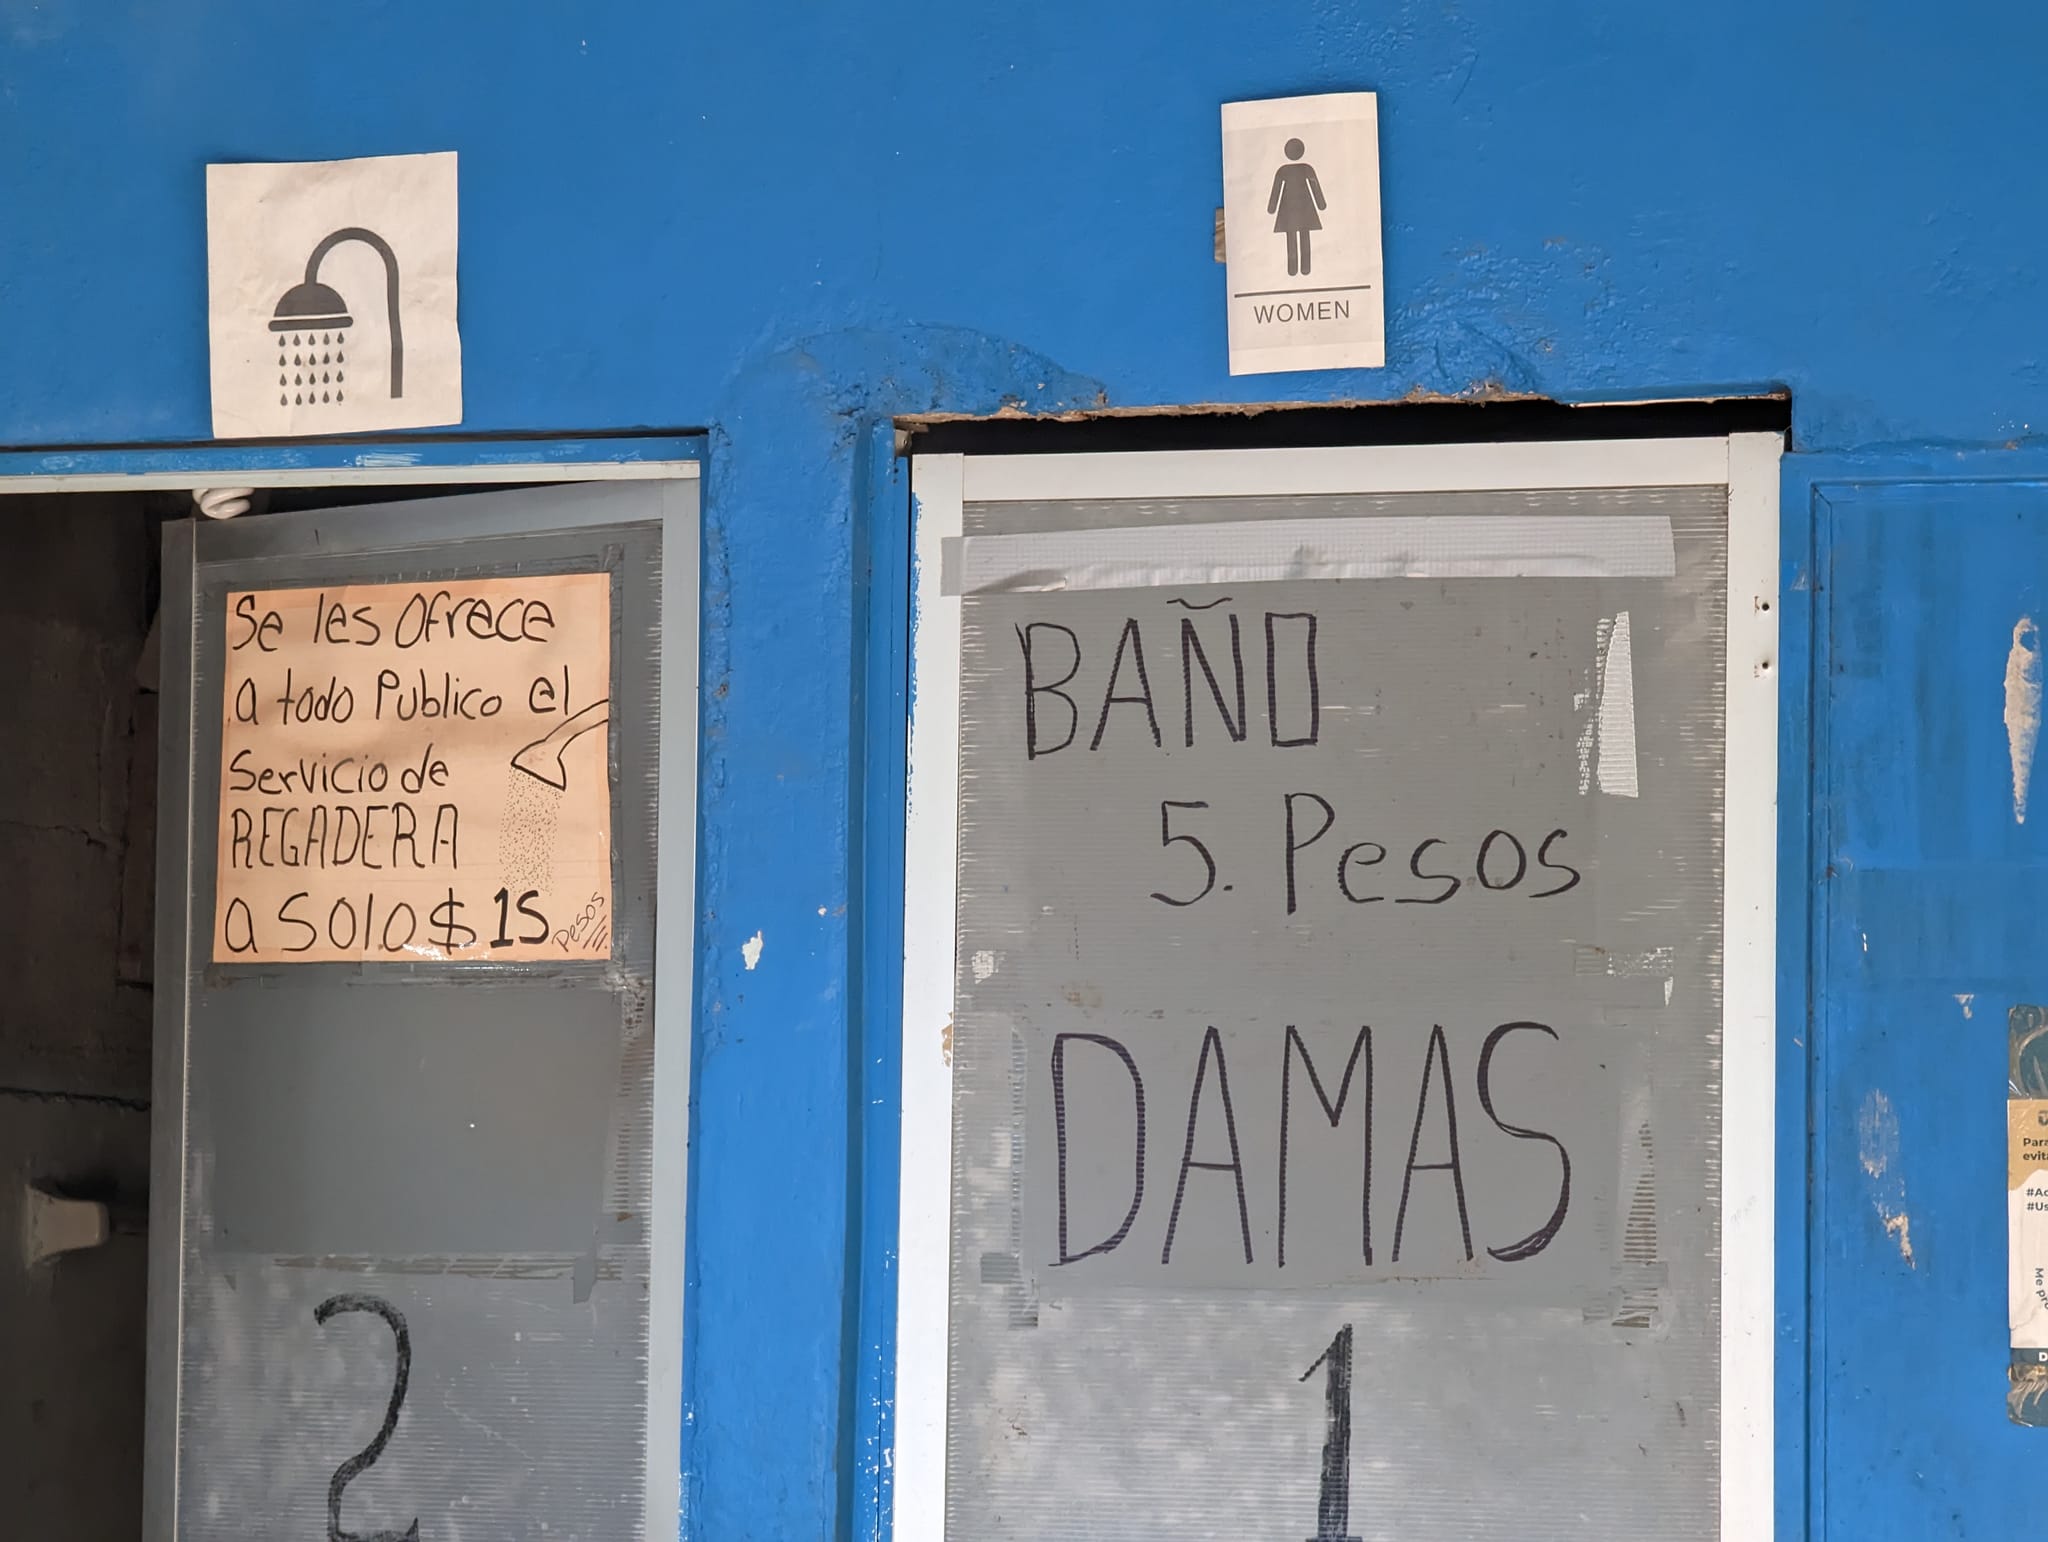 Se les ofrece
a todo Publico el
Servicio de
REGADERA
a solo $ 15 Pesos
2
WOMEN
BAÑO
5. Pesos
DAMAS
1
Para
#Ac
#Us
Me pro